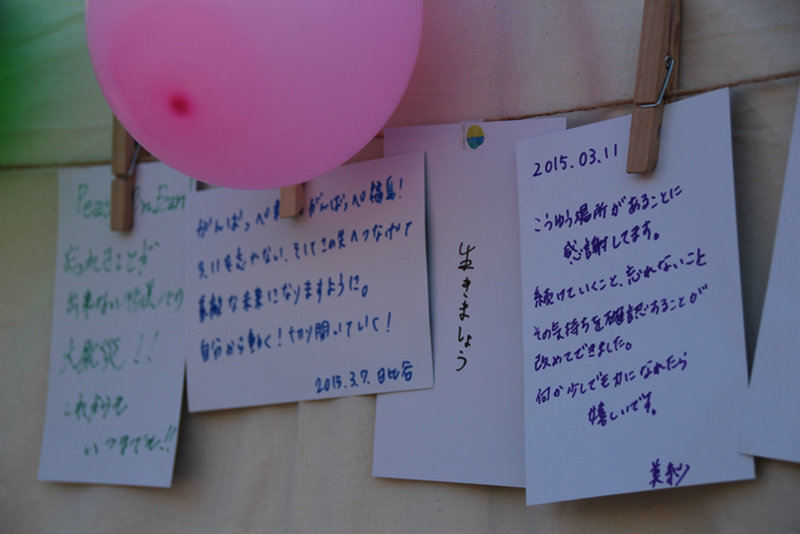 Peace On Earth
忘れることが
出来ない
大震災!!
これからも
いつまでも!!
がんばっぺ 東 がんばっぺ福島!
3.11を忘れない、そしてこの先へつなげて
素敵な未来になりますように。
自分から動く!切り開いていく!
2015.3.7. 日比谷
生きましょう
2015.03.11
こうゆう場所があることに
感謝してます。
続けていくこと、忘れないこと
その気持ちを確認あることが
改めてできました。
何か少しでも力になれたら
嬉しいです。
美紗